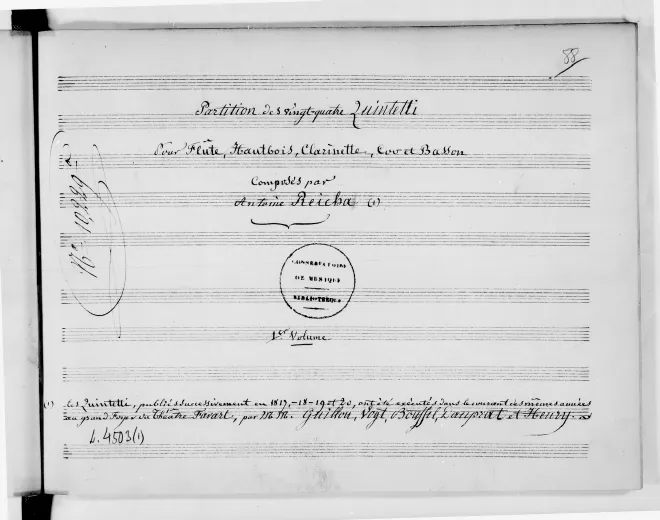 88
Partition des vingt-quatre Quintetti
Pour Flûte, Hautbois, Clarinette, Cor et Basson
Composés par
Antoine Reicha (1)
CONSERVATOIRE
DE MUSIQUE
BIBLIOTHÈQUE
1er Volume
(1) Les Quintetti, publiés successivement en 1817, -18-19 et 20, ont été exécutés dans le courant des mêmes années
au grand Foyer du Théâtre Favart, par MM. Guillou, Vogt, Bouffil, Dauprat et Henry.
L. 4503 (1)